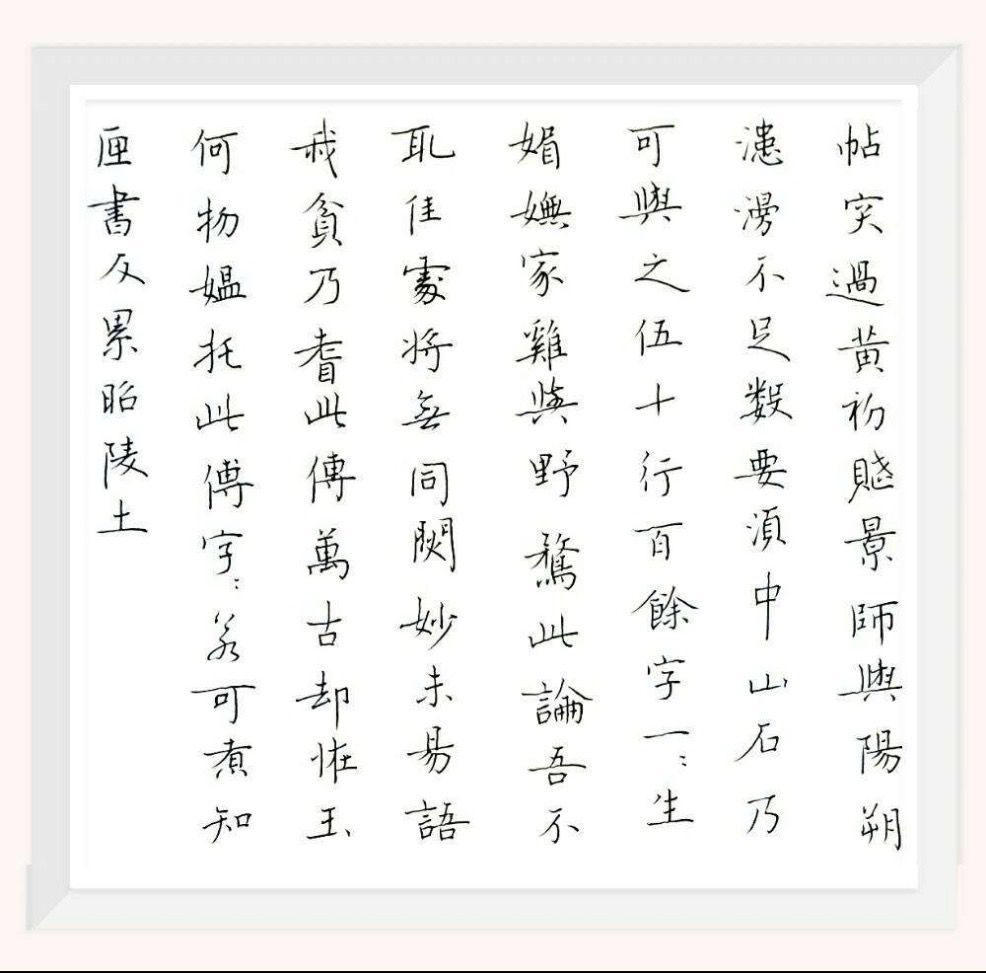 帖突過黄初景師與陽朔
漶漫不足數要須中山石乃
可與之伍十行百餘字一〻生
媚嫵家雞與野鶩此論吾不
取佳處將無同闕妙未易語
我貧乃耆此傳萬古却恠玉
何物媼托此傳字〻若可煮知
匣書反累昭陵土